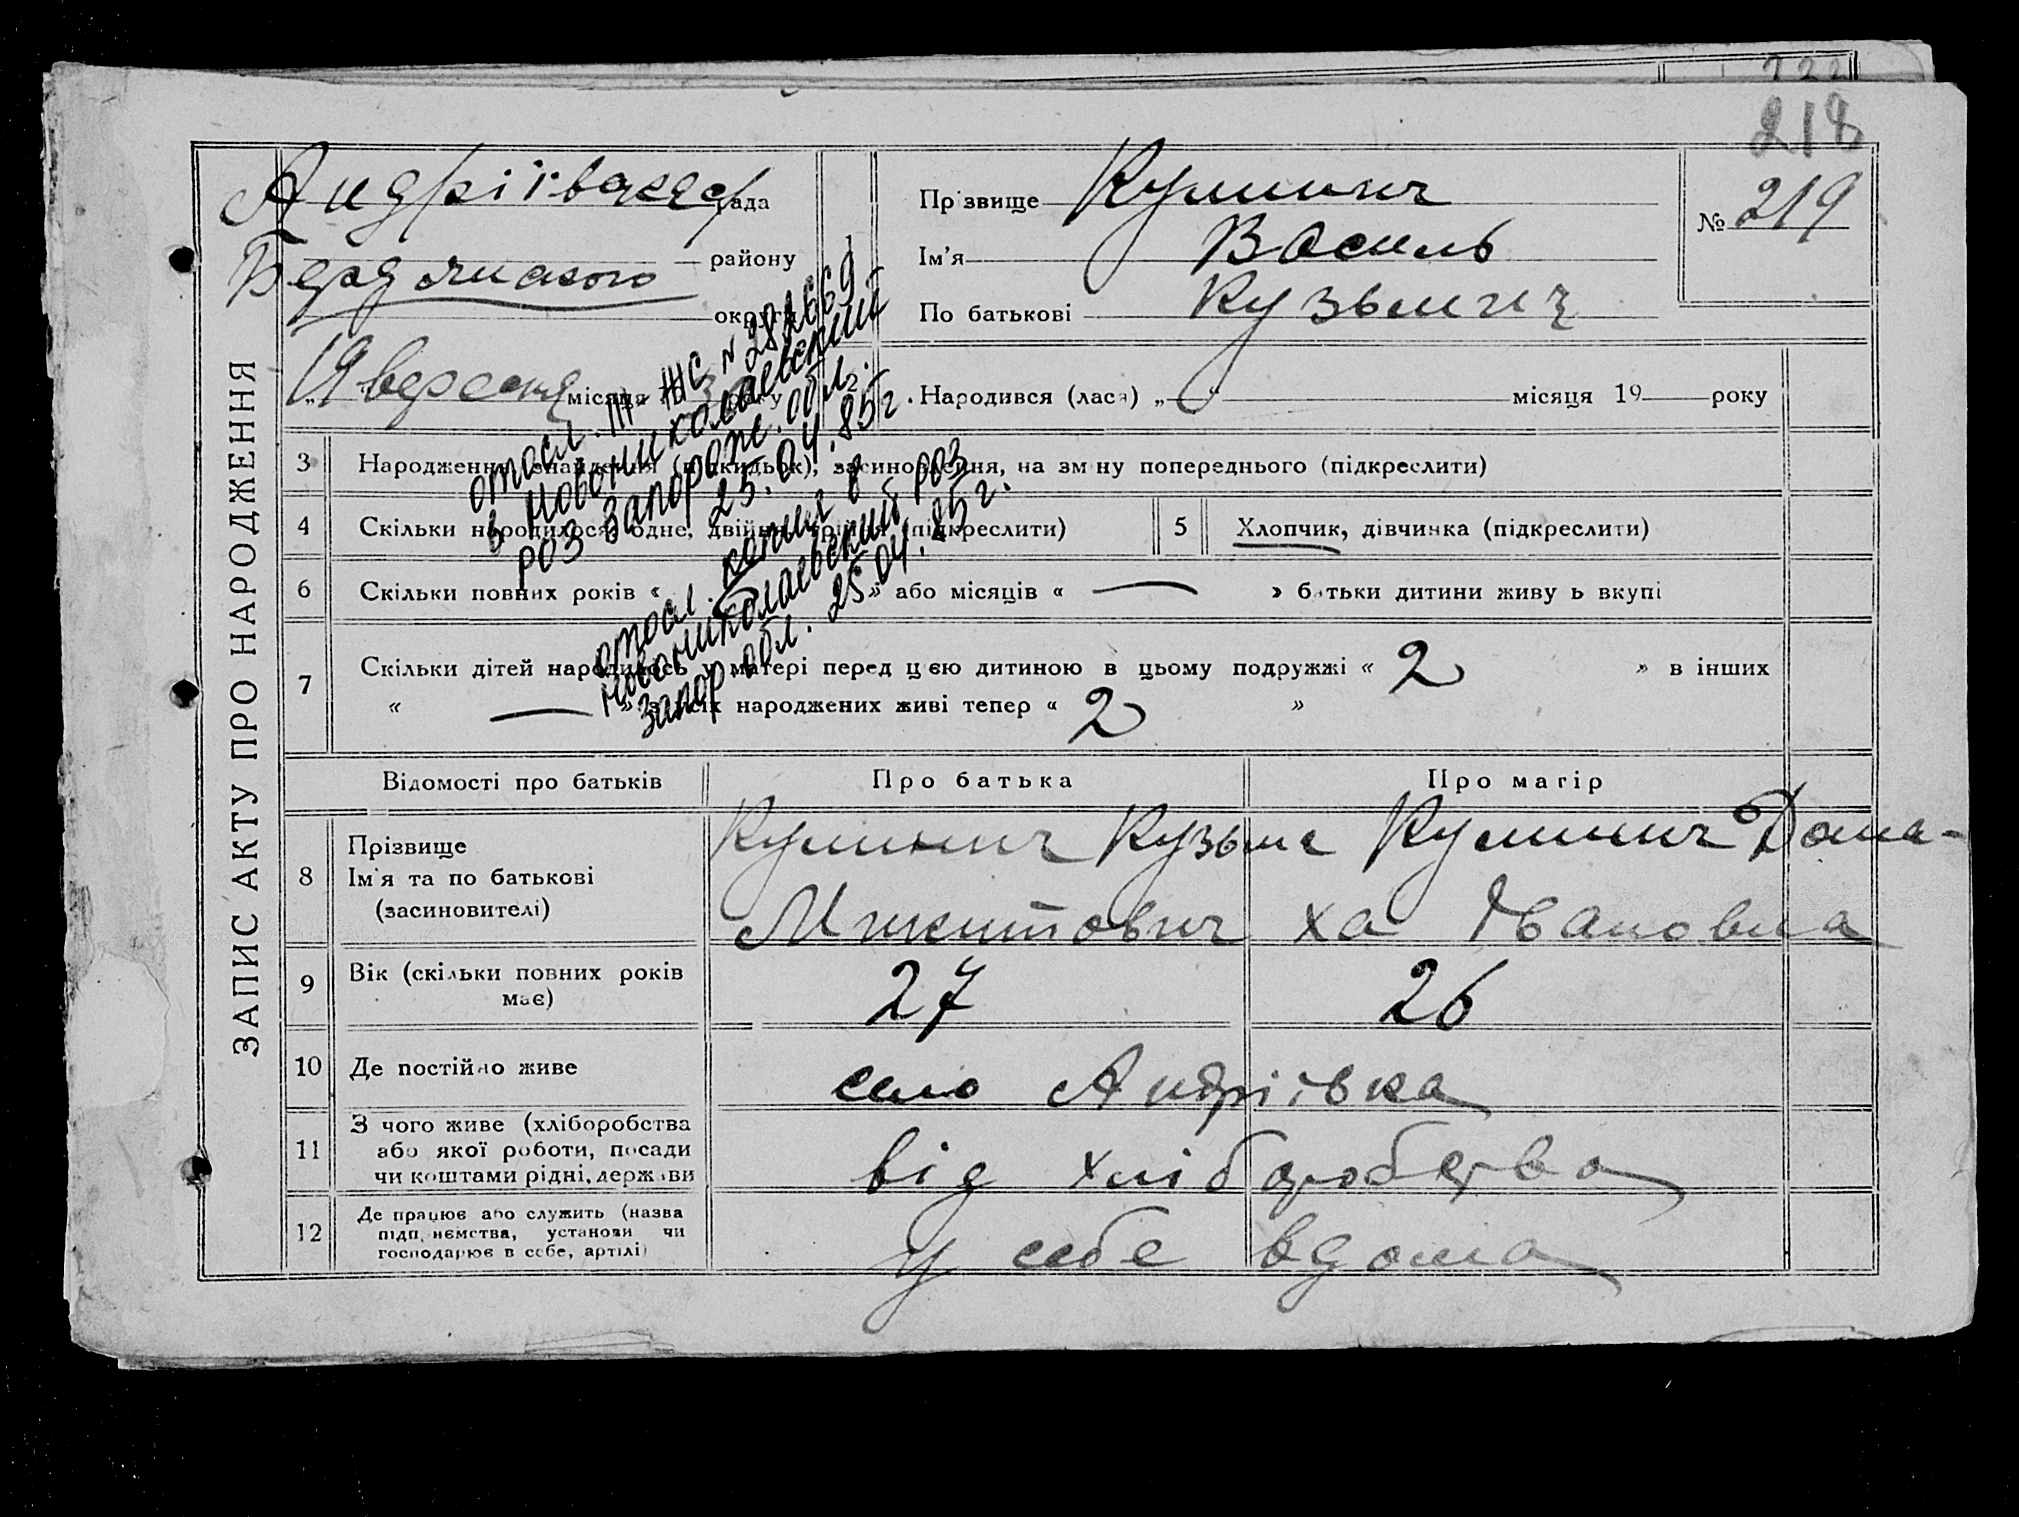 222
218
ЗАПИС АКТУ ПРО НАРОДЖЕННЯ
Андріївська рада
району
Бердянського
округи
Прізвище Кулинич
Ім'я Василь
По батькові Кузьмич
№ 219
„19 вересня місяця року
Народився (лася) „ " місяця 19 року
отосл. ІІІ-ЖС N 282669
в Новониколаевский
РОЗ Запорож. обл.
25.04.85г.
отосл. копия в
Новониколаевский РОЗ
Запор обл. 25.04.85г.
3 Народження, знайдення (підкидьок), засиновлення, на зміну попереднього (підкреслити)
4 Скільки народилося: одне, двійня, трійня (підкреслити)
5 Хлопчик, дівчинка (підкреслити)
6 Скільки повних років « » або місяців « — » батьки дитини живуть вкупі
7 Скільки дітей народилось у матері перед цією дитиною в цьому подружжі « 2 » в інших
« — » з усіх народжених живі тепер « 2 »
Відомості про батьків Про батька Про матір
8 Прізвище
Ім'я та по батькові
(засиновителі)
Кулинич Кузьма
Микитович
Кулинич Дома-
ха Івановна
9 Вік (скільки повних років
має)
27 26
10 Де постійно живе село Андріївка
11 З чого живе (хліборобства
або якої роботи, посади
чи коштами рідні, держави
від хліборобства
12 Де працює або служить (назва
підприємства, установи чи
господарює в себе, артілі)
у себе вдома